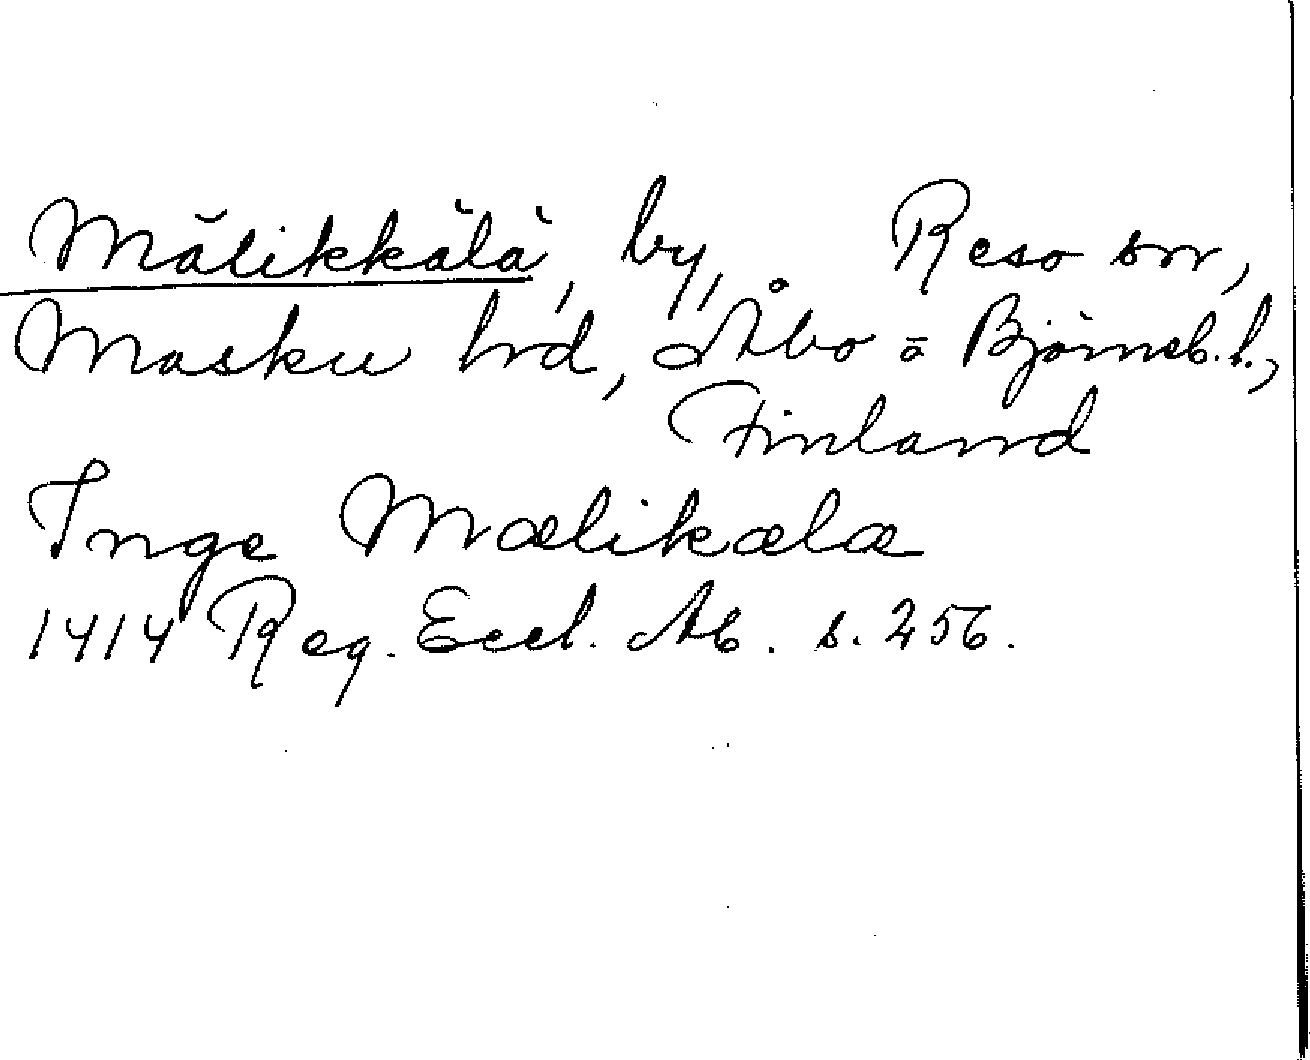 Mälikkälä, by, Reso sn,
Masku hd, Åbo o Björneb. l.,
Finland
Inge Mælikælæ
1414 Reg. Eccl. Ab. s. 256.